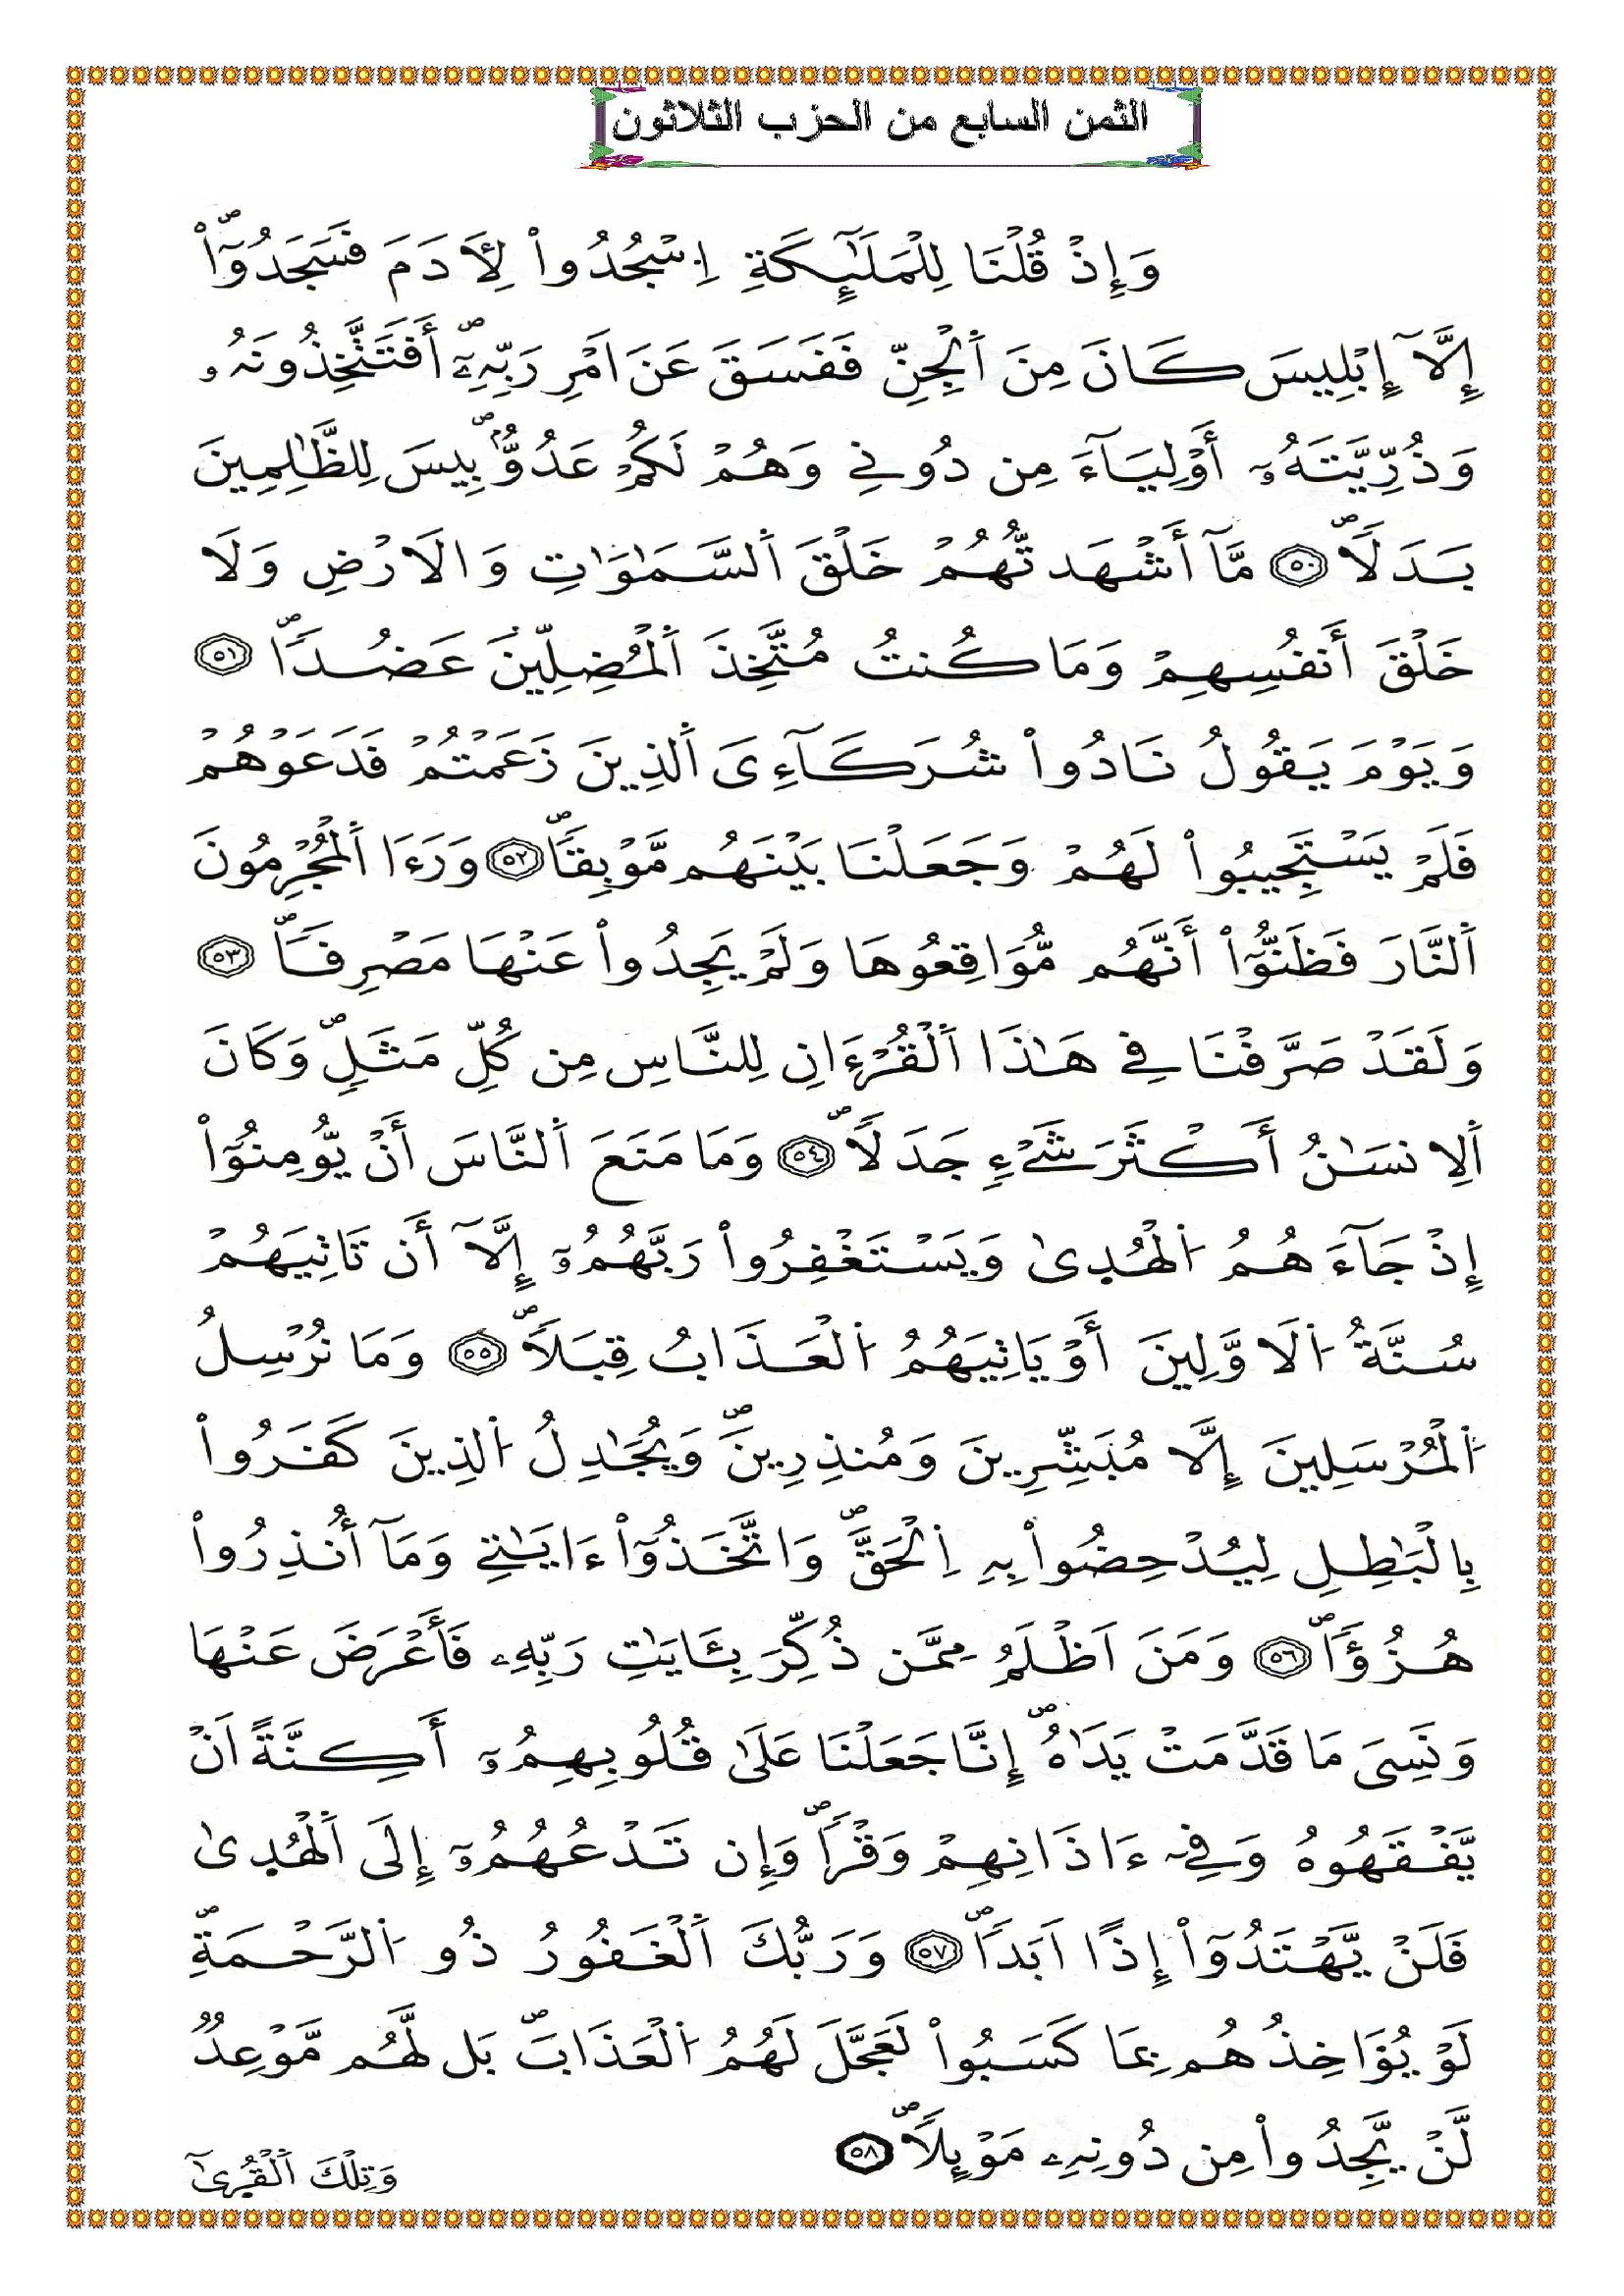 الثمن السابع من الحزب الثلاثون
وَإِذْ قُلْنَا لِلْمَلَٰٓئِكَةِ اِ۟سْجُدُواْ لِأٓدَمَ فَسَجَدُوٓاْۖ
إِلَّآ إِبْلِيسَ كَانَ مِنَ اَ۬لْجِنِّ فَفَسَقَ عَنَ اَمْرِ رَبِّهِۦٓۖ أَفَتَتَّخِذُونَهُۥ
وَذُرِّيَّتَهُۥٓ أَوْلِيَآءَ مِن دُونِے وَهُمْ لَكُمْ عَدُوُّۢۖ بِيسَ لِلظَّٰلِمِينَ
بَدَلاٗۖ ٥٠ مَّآ أَشْهَدتُّهُمْ خَلْقَ اَ۬لسَّمَٰوَٰتِ وَالَارْضِ وَلَا
خَلْقَ أَنفُسِهِمْ وَمَا كُنتُ مُتَّخِذَ اَ۬لْمُضِلِّينَ عَضُداٗۖ ٥١
وَيَوْمَ يَقُولُ نَادُواْ شُرَكَآءِيَ اَ۬لذِينَ زَعَمْتُمْ فَدَعَوْهُمْ
فَلَمْ يَسْتَجِيبُواْ لَهُمْ وَجَعَلْنَا بَيْنَهُم مَّوْبِقاٗۖ ٥٢ وَرَءَا اَ۬لْمُجْرِمُونَ
اَ۬لنَّارَ فَظَنُّوٓاْ أَنَّهُم مُّوَاقِعُوهَا وَلَمْ يَجِدُواْ عَنْهَا مَصْرِفاٗۖ ٥٣
وَلَقَدْ صَرَّفْنَا فِے هَٰذَا اَ۬لْقُرْءَانِ لِلنَّاسِ مِن كُلِّ مَثَلٖۖ وَكَانَ
اَ۬لِانسَٰنُ أَكْثَرَ شَےْءٖ جَدَلاٗۖ ٥٤ وَمَا مَنَعَ اَ۬لنَّاسَ أَنْ يُّومِنُوٓاْ
إِذْ جَآءَهُمُ اُ۬لْهُدِىٰ وَيَسْتَغْفِرُواْ رَبَّهُمُۥٓ إِلَّآ أَن تَاتِيَهُمْ
سُنَّةُ اُ۬لَاوَّلِينَ أَوْ يَاتِيَهُمُ اُ۬لْعَذَابُ قِبَلاٗۖ ٥٥ وَمَا نُرْسِلُ
اُ۬لْمُرْسَلِينَ إِلَّا مُبَشِّرِينَ وَمُنذِرِينَۖ وَيُجَٰدِلُ اُ۬لذِينَ كَفَرُواْ
بِالْبَٰطِلِ لِيُدْحِضُواْ بِهِ اِ۬لْحَقَّۖ وَاتَّخَذُوٓاْ ءَايَٰتِے وَمَآ أُنذِرُواْ
هُزُؤاٗۖ ٥٦ وَمَنَ اَظْلَمُ مِمَّن ذُكِّرَ بِـَٔايَٰتِ رَبِّهِۦ فَأَعْرَضَ عَنْهَا
وَنَسِيَ مَا قَدَّمَتْ يَدَٰهُۖ إِنَّا جَعَلْنَا عَلَىٰ قُلُوبِهِمُۥٓ أَكِنَّةً اَنْ
يَّفْقَهُوهُ وَفِےٓ ءَاذَانِهِمْ وَقْراٗۖ وَإِن تَدْعُهُمُۥٓ إِلَى اَ۬لْهُدِىٰ
فَلَنْ يَّهْتَدُوٓاْ إِذاً اَبَداٗۖ ٥٧ وَرَبُّكَ اَ۬لْغَفُورُ ذُو اُ۬لرَّحْمَةِۖ
لَوْ يُؤَاخِذُهُم بِمَا كَسَبُواْ لَعَجَّلَ لَهُمُ اُ۬لْعَذَابَۖ بَل لَّهُم مَّوْعِدٞ
لَّنْ يَّجِدُواْ مِن دُونِهِۦ مَوْئِلاٗۖ ٥٨
وَتِلْكَ اَ۬لْقُرِىٰٓ